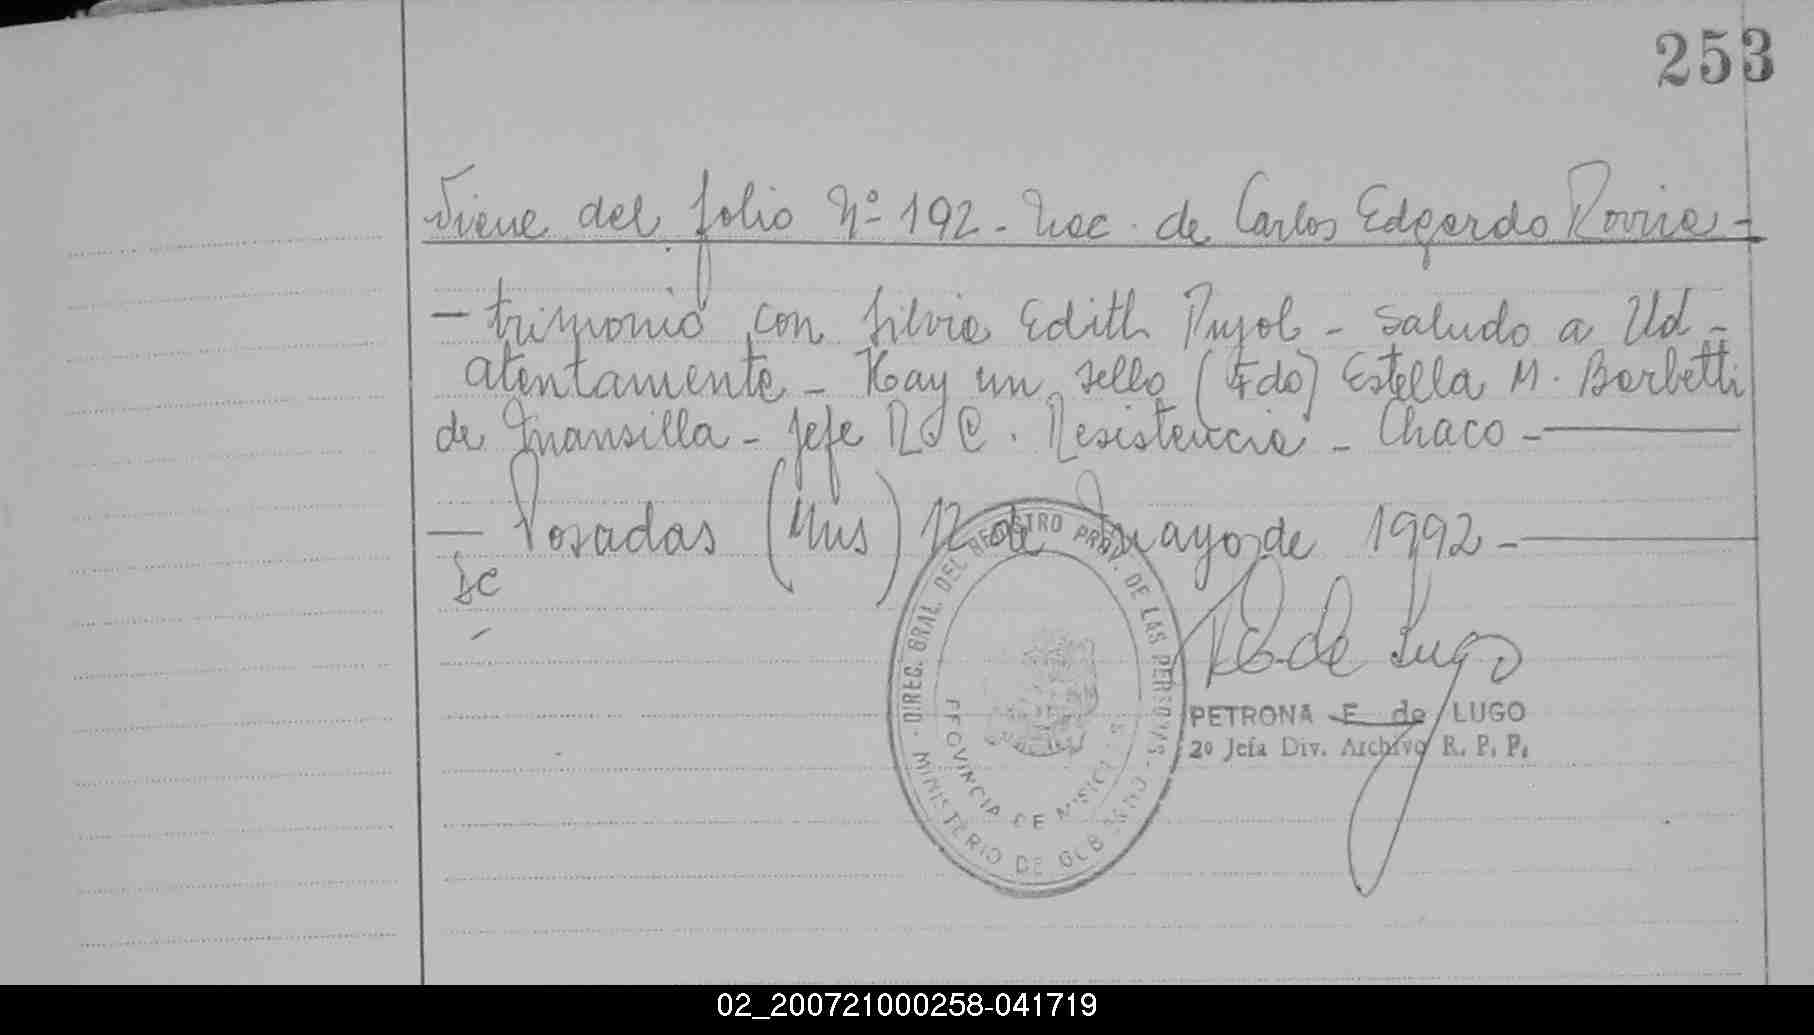 253
Viene del folio Nº 192 - Nac. de Carlos Edgardo Rovira -
- trimonio con Silvia Edith Pujol - Saludo a Ud -
atentamente - Hay un sello (Fdo) Estella M. Barbetti
de Mansilla - Jefe R. C. Resistencia - Chaco -
- Posadas (Mns) 12 de Mayo de 1992 -
DIREC. GRAL. DEL REGISTRO PROV. DE LAS PERSONAS
MINISTERIO DE GOBIERNO
PROVINCIA DE MISIONES
de Lugo
PETRONA E de LUGO
2º Jefa Div. Archivo R. P. P.
02_200721000258-041719